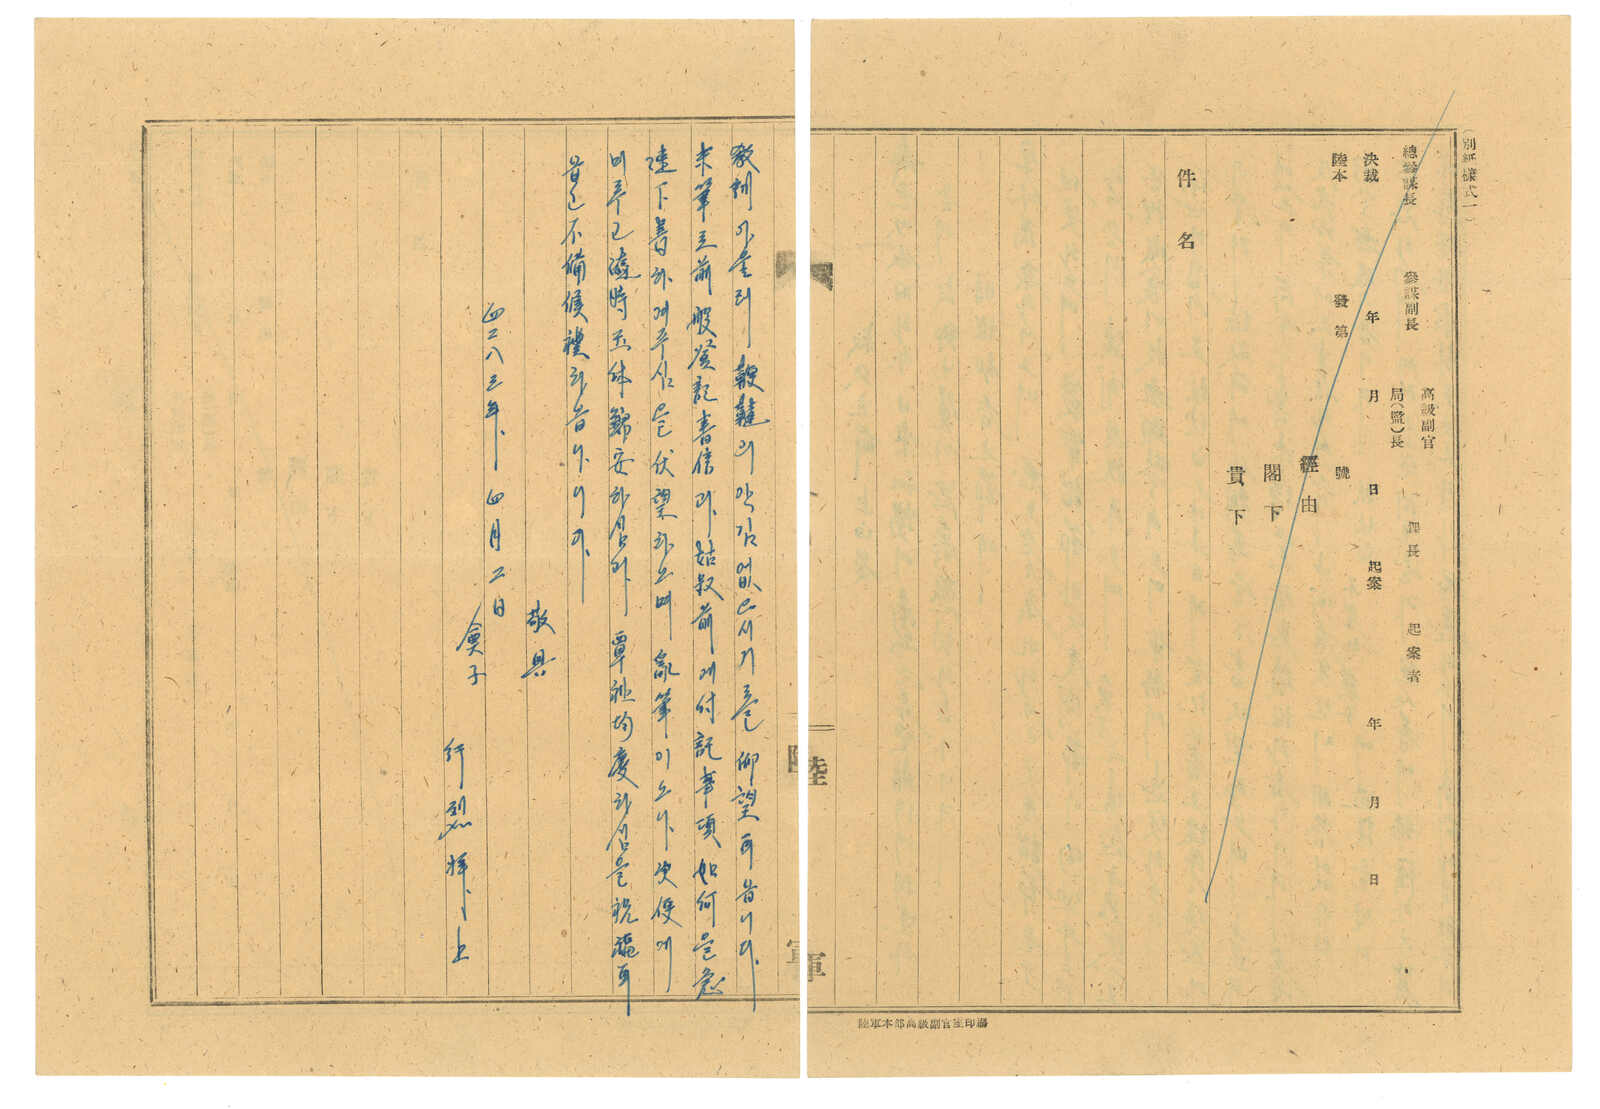 (別紙樣式一)
總參謀長 參謀副長 高級副官 局(監)長 課長 起案者
決裁 年 月 日 起案 年 月 日
陸本 發第 號
經由
閣下
貴下
件名
陸軍
陸軍本部高級副官室印刷
敎訓이올리 鞭韃의 앗김없으시기를 仰望하옵니다.
末筆로 前般 登記書信과 姑叔前에 付託事項 如何을
陸下書하여주심을 伏望하오며 亂筆이오나 更便에
미루고 時 玉体 錦安하심과 覃祉均慶하심을 祝福하
옵고 不備候禮하옵나이다.
敬具
四二八三年 四月 二日
會子
行烈 拜上